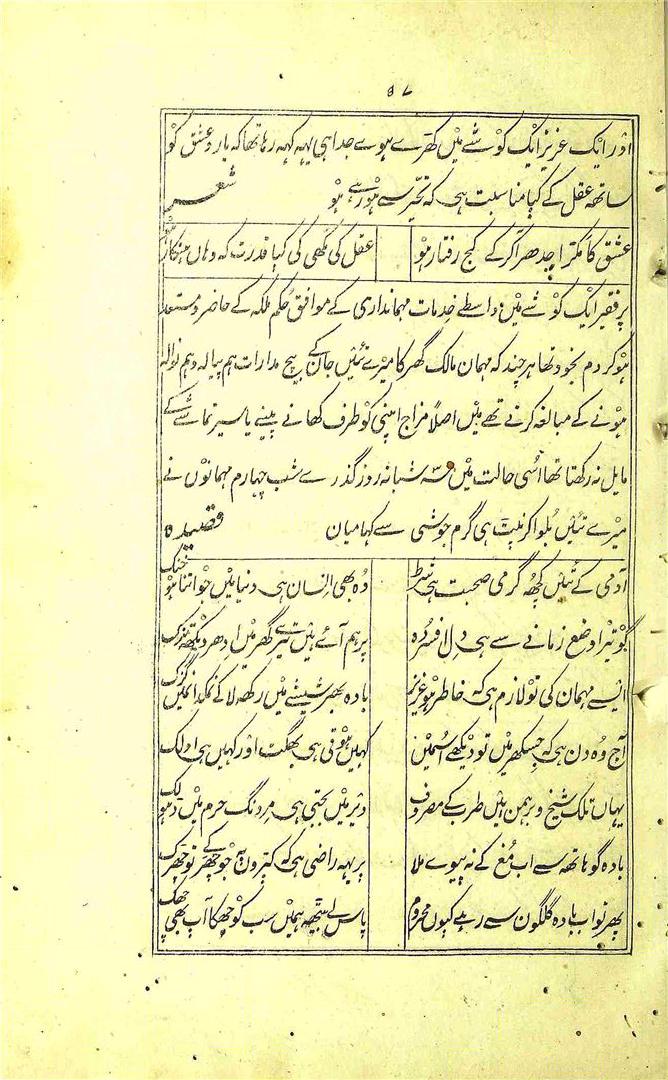 ٥٧
اور ایک عزیز ایک گوشے میں کھڑے ہوے جدا ہی یہہ کہہ رہا تھا کہ یارو عشق کو
ساتھ عقل کے کیا مناسبت ہی کہ تحیر سے ہو رہے ہو شعر
عشق کا مکڑا جدھر اکر کے کج رفتار ہو عقل کی مکھی کی کیا قدرت کہ وهاں بھنکار ہو
پر فقیر ایک گوشے میں واسطے خدمات مہمانداری کے موافق حکم ملکہ کے حاضر و مستعد
ہو کر دم بخود تھا ہر چند کہ مہمان مالک گھر کا میرے تئیں جان کے بیچ مدارات ہم پیالہ و ہم نوالہ
ہونے کے مبالغہ کرتے تھے میں اصلا مزاج اپنی کو طرف کھانے پینے یا سیر تماشے کے
مایل نہ رکھتا تھا اسی حالت میں ٣ شبانہ روز گذرے شب چہارم مہمانوں نے
میرے تئیں بلوا کر نپٹ ہی گرم جوشی سے کہا میان قصیدہ
آدمی کے تئیں کچھ گرمی صحبت ہی شرط وہ بھی انسان ہی دنیا میں جو اتنا ہو خنک
گو تیرا وضع زمانے سے ہی دل افسردہ پر ہم آئے ہیں تیرے گھر میں ادھر دیکھ تنک
ایسے مہمان کی تو لازم ہی کہ خاطر ہو عزیز بادہ بھر شیشے میں رکھ لا کے نمکدان میں گزک
آج وہ دن ہی کہ جس گھر میں تو دیکھے اسمیں کہیں ہوتی ہی بھگت اور کہیں ہی
یہاں تلک شیخ و برہمن ہیں طرب کے مصروف دیر میں بجتی ہی مردنگ حرم میں ڈھولک
بادہ گو ہاتھ سے اب مغ کے نہ پیوے ملا پر یہہ راضی ہی کہ کپڑوں پہ جو چھڑکے تو چھڑک
پھر تو اب بادہ گلگوں سے رہے کیوں محروم پاس لے شیشہ ہمیں سب کو چھکا آپ بھی چھک